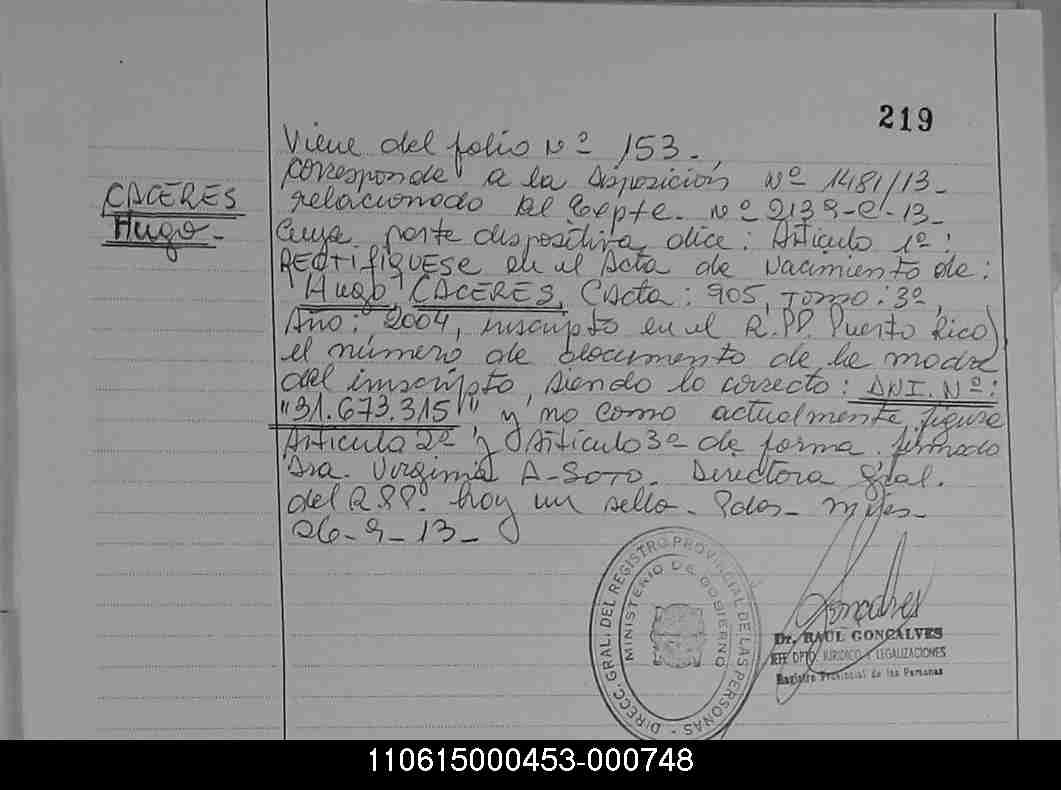 219
CACERES
Hugo-
Viene del folio Nº 153-
corresponde a la Disposición Nº 1481/13-
relacionado al Expte. Nº 2139-C-13-
Cuya parte dispositiva dice: Artículo 1º:
RECTIFIQUESE en el Acta de Nacimiento de:
"Hugo CACERES, (Acta: 905, Tomo: 3º,
Año: 2004, inscripto en el R.PP. Puerto Rico)
el número de documento de la madre
del inscripto, siendo lo correcto: DNI. Nº:
"31.673.315" y no como actualmente figura
Artículo 2º y Artículo 3º de forma. firmado
Dra. Virginia A-SOTO. Directora Gral.
del R.PP. hay un sello- Pdas- Mnes-
26-9-13-
DIRECC. GRAL. DEL REGISTRO PROVINCIAL DE LAS PERSONAS -
MINISTERIO DE GOBIERNO
Dr. RAUL GONCALVES
JEFE DPTO. JURIDICO Y LEGALIZACIONES
Registro Provincial de las Personas
110615000453-000748